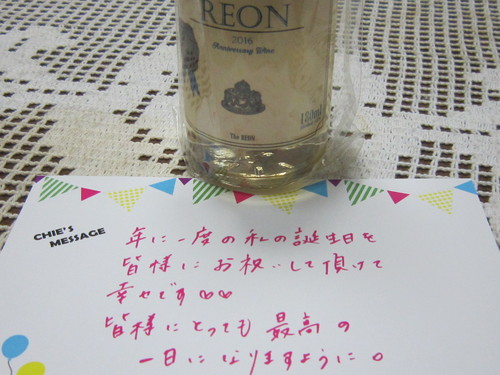 REON
2016
Anniversary Wine
180ml
The REON
CHIE'S
MESSAGE
年に一度の私の誕生日を
皆様にお祝いして頂けて
幸せです♡♡
皆様にとっても最高の
一日になりますように。